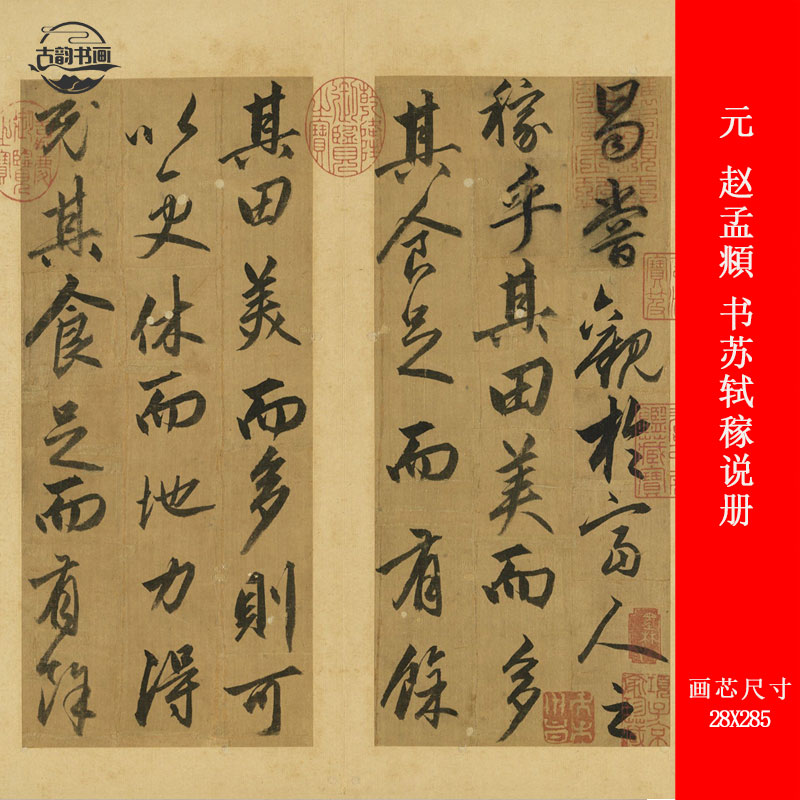 古韵书画
曷嘗觀於富人之
稼乎其田美而多
其食足而有餘
其田美而多則可
以更休而地力得
完其食足而有餘
乾隆御覽之寶
元 赵孟頫 书苏轼稼说册
画芯尺寸
28X285